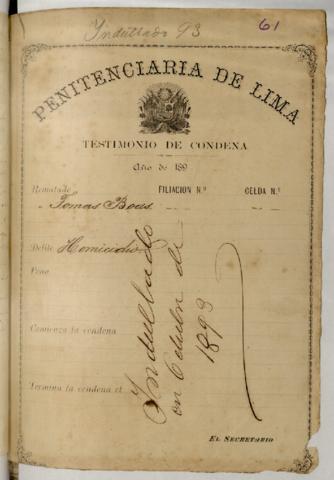 Indultado 93
61
PENITENCIARIA DE LIMA
TESTIMONIO DE CONDENA
Año de 189
Rematado FILIACION N.º CELDA N.º
Tomas
Delito Homicidio
Pena
Comienza la condena
Termina la condena el
Indultado
en Octubre de
1893
EL SECRETARIO